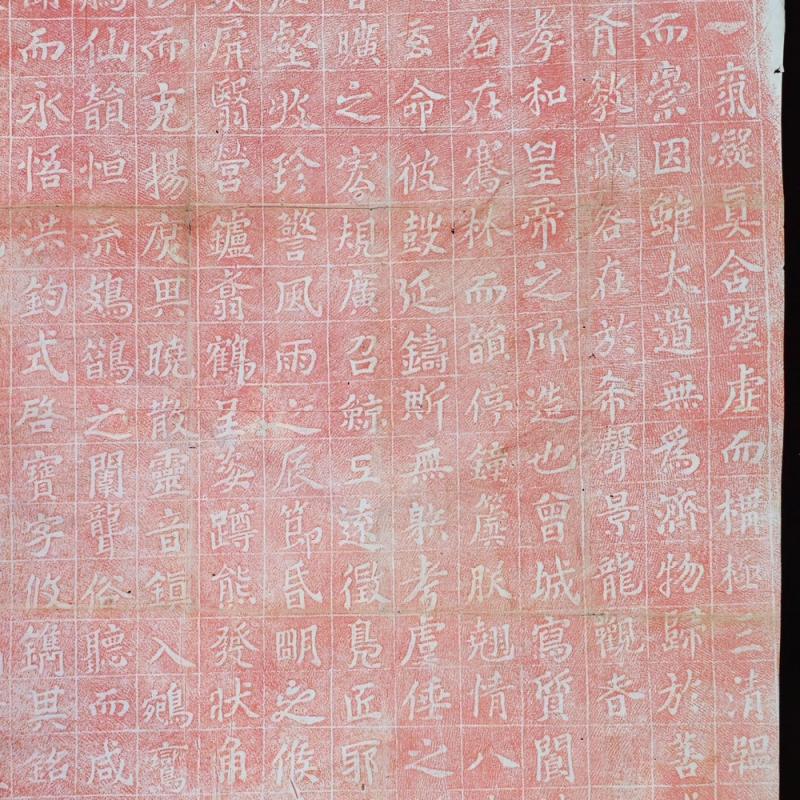 一氣凝真含紫虛而構極三清韞
而崇因雖大道無為濟物歸於善
有教滅咎在於希聲景龍觀者
孝和皇帝之所造也曾城寫質閬
名在騫林而韻停鐘簴朕翹情八
玄命彼鼓延鑄斯無射考虞倕之
曠之宏規廣召鯨工遠徵鳧匠耶
壑收珍警風雨之辰節昏明之候
屏翳營鑪翥鶴呈姿蹲熊發狀角
而克揚曉散靈音鎮入鵷鸞
仙韻恒流鳷鵲之闈聾俗聽而咸
而永悟洪鈞式啓寶字攸鐫其銘